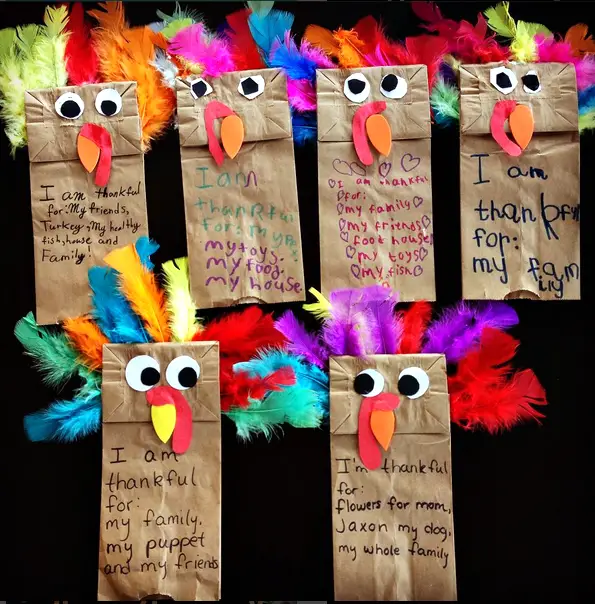 I am thankful
for: My friends,
Turkey, My healthy
fish, house and
Family!
I am
thankful
for: my
my toys.
my food.
my house
I am thankful
for:
my family
my friends
food house,
my toys
my fish
I am
thankful
for:
my family
I am
thankful
for:
my family.
my puppet
and my friends
I'm thankful
for:
flowers for mom,
Jaxon my dog,
my whole family